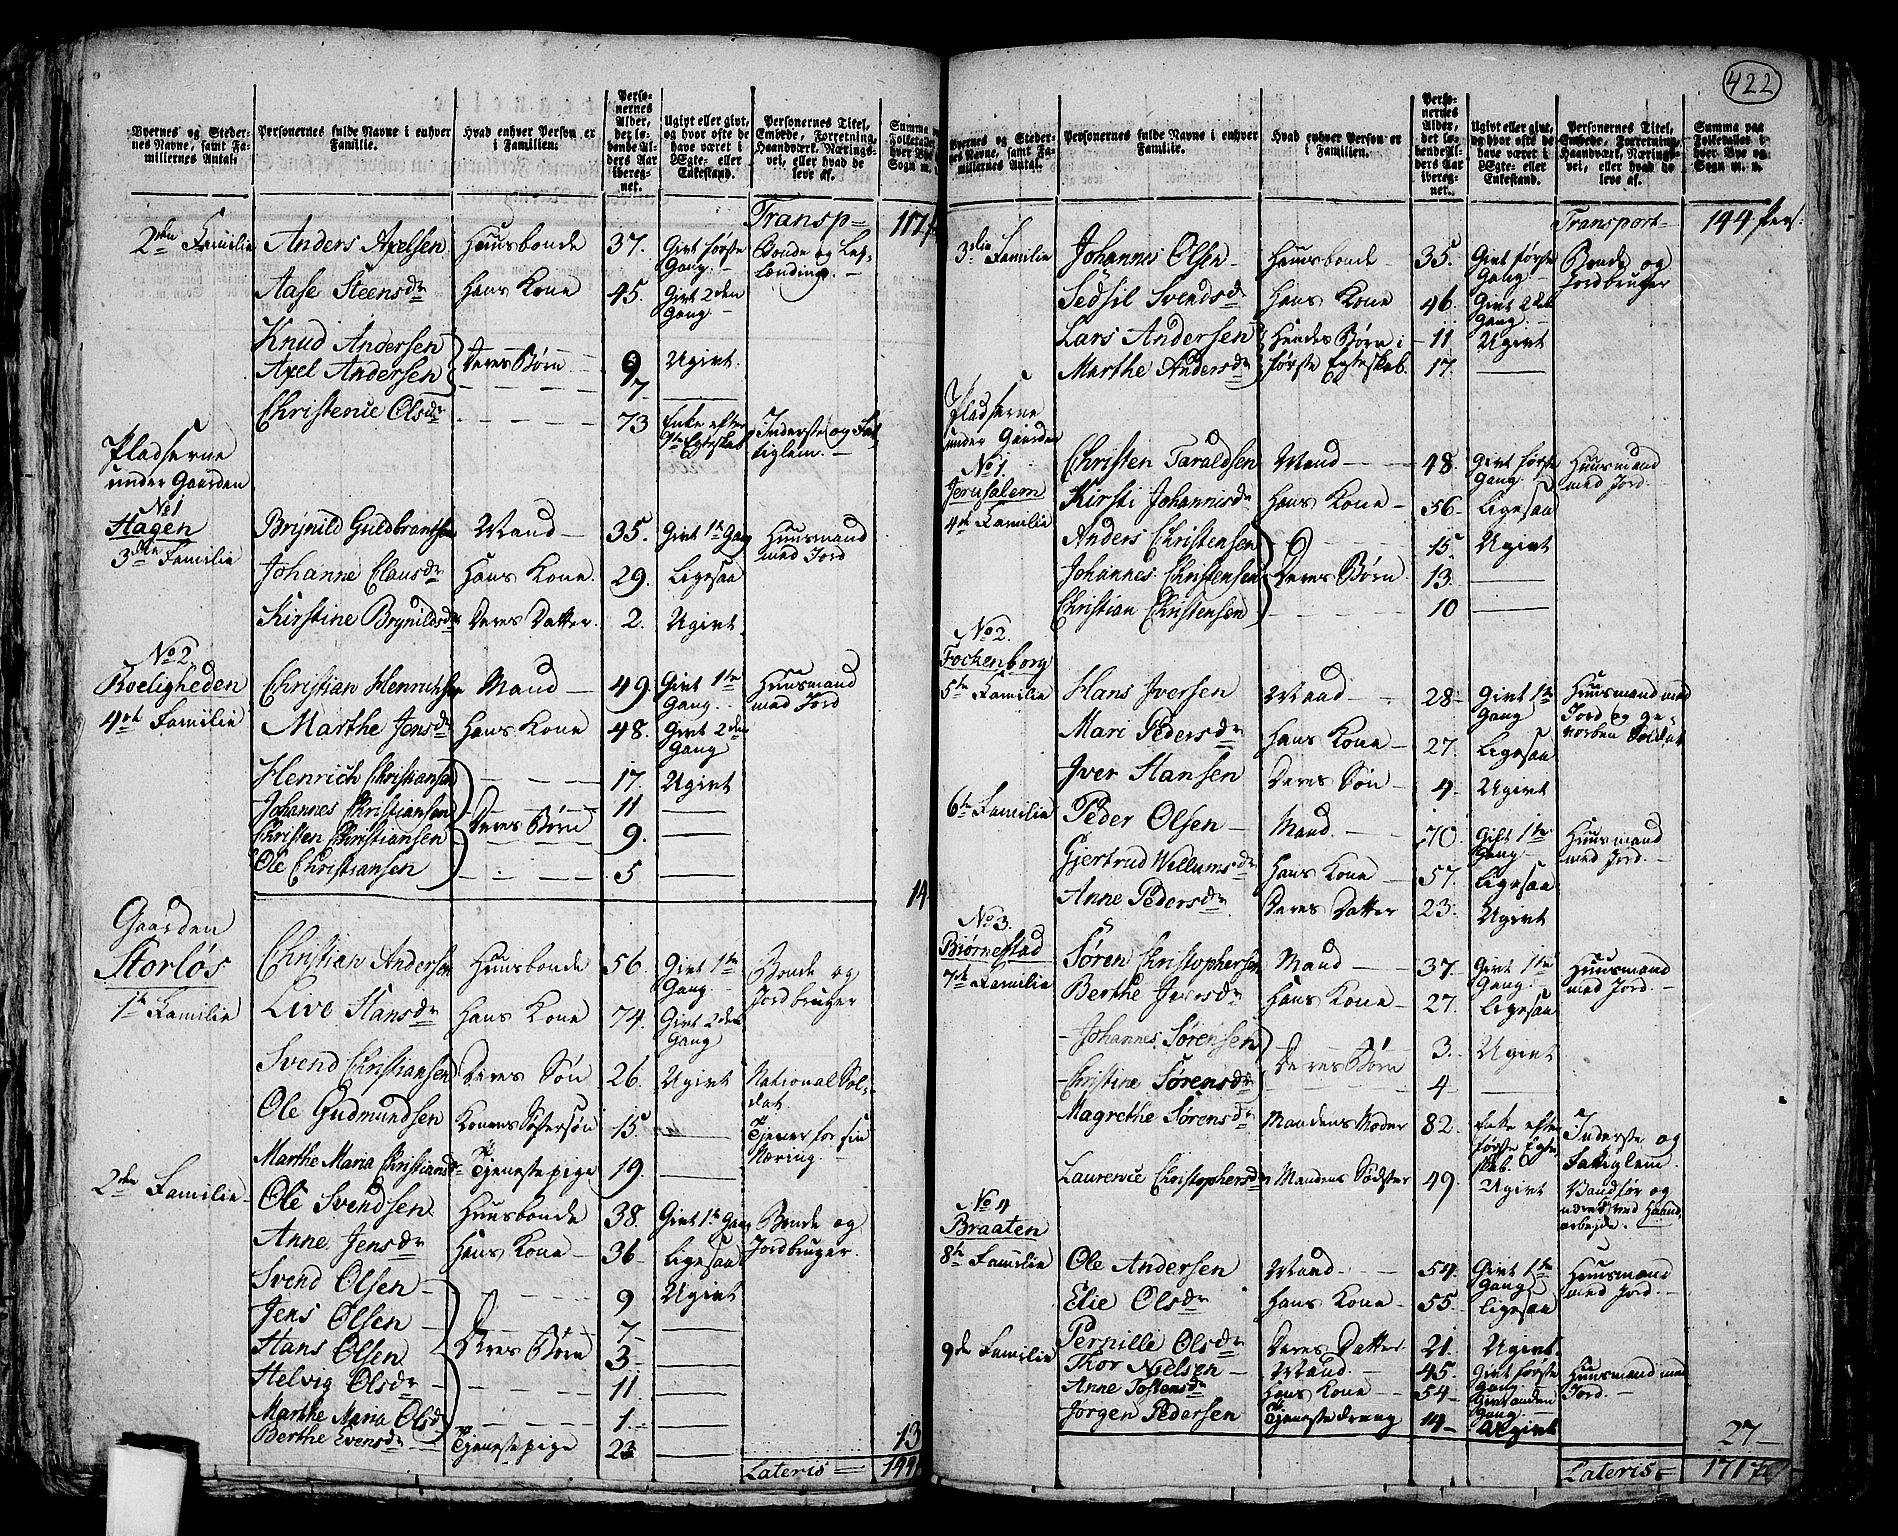 422
Byernes og Steder-
nes Navne, samt Fa-
milliernes Antal.
Personernes fulde Navne i enhver
Familie.
Hvad enhver Person er
i Familien.
Perso-
nernes
Alder,
det lø-
bende Al-
ders Aar
iberegnet.
Ugivt eller givt,
og hvor ofte de
have været i
Ægte- eller
Enkestand.
Personernes Titel,
Embede, Forretning,
Haandværk, Nærings-
vei, eller hvad de
leve af.
Summa paa
Folketallet i
hver Bye og
Sogn m. v.
Transp- 117
2den Familie Anders Axelsen Huusbonde 37. Givt første Gang. Bonde og
Aase Steensdr Hans Kone 45. Givt 2den Gang
Knud Andersen Deres Børn 9 Ugivt
Axel Andersen 7 —
Christence Olsdr 73 Enke efter 1te Egteskab Inderste og
Pladserne
under Gaarden
No 1
Hagen
3die Familie Brynild Guldbrandsen Mand 35. Givt 1te Gang Huusmand med Jord
Johanne Clausdr Hans Kone. 29. Ligesaa
Kirstine Brynildsdr Deres Datter. 2. Ugivt
No 2
Roeligheden
4de Familie Christian Henrichsen Mand 49. Givt 1te Gang. Huusmand med Jord
Marthe Jensdr Hans Kone 48. Givt 2den Gang
Henrich Christiansen 17. Ugivt
Johannes Christiansen Deres Børn 11 —
Christen Christiansen 9. —
Ole Christiansen 5 —
14
Gaarden
Storløs
1te Familie Christian Andersen Huusbonde 56. Givt 1te Gang Bonde og Jordbruger
Live Hansdr Hans Kone 74. Givt 2den Gang
Svend Christiansen Deres Søn 26. Ugivt National Soldat.
Ole Gudmundsen Konens Søstersøn 15. — Tjener for sin Næring.
Marthe Maria Christiansdr Tjenestepige 19. —
2den Familie Ole Svendsen Huusbonde 38. Givt 1te Gang Bonde og Jordbruger.
Anne Jensdr Hans Kone 36 Ligesaa
Svend Olsen 9 Ugivt
Jens Olsen 7 —
Hans Olsen Deres Børn 3 —
Helvig Olsdr 11 —
Marthe Maria Olsd 1 —
Berthe Evensdr Tjenestepige 23 —
13
Lateris 144
Byernes og Steder-
nes Navne, samt Fa-
milliernes Antal.
Personernes fulde Navne i enhver
Familie.
Hvad enhver Person er
i Familien.
Perso-
nernes
Alder,
det lø-
bende Al-
ders Aar
iberegnet.
Ugivt eller givt,
og hvor ofte de
have været i
Ægte- eller
Enkestand.
Personernes Titel,
Embede, Forretning,
Haandværk, Nærings-
vei, eller hvad de
leve af.
Summa paa
Folketallet i
hver Bye og
Sogn m. v.
Transport 144 Pers:
3die Familie Johannes Olsen Huusbonde 35. Givt første Gang Bonde og Jordbruger
Sedsil Svendsdr Hans Kone 46. Givt 2den Gang
Lars Andersen Hendes Børn i første Egteskab. 11 Ugivt
Marthe Andersdr 17. —
Pladserne
under Gaarden
No 1.
Jerusalem
4de Familie Christen Taraldsen Mand 48. Givt første Gang Huusmand med Jord.
Kirsti Johannisdr Hans Kone 56 Ligesaa
Anders Christensen 15. Ugivt
Johannes Christensen Deres Børn 13. —
Christian Christensen 10 —
No 2.
Fockenborg
5te Familie Hans Iversen Mand 28 Givt 1te Gang Huusmand med Jord og ge-
vorben Soldat
Mari Pedersdr Hans Kone 27. Ligesaa
Iver Hansen Deres Søn 4 Ugivt
6te Familie Peder Olsen Mand. 70. Gift 1te Gang Huusmand med Jord.
Gjertrud Willumsdr Hans Kone 57. Ligesaa
Anne Pedersdr Deres Datter 23. Ugivt
No 3.
Biørnestad
7de Familie Søren Christophersen Mand 37. Givt 1te Gang. Huusmand med Jord.
Berthe Hans Kone 27. Ligesaa
Johannes Sørensen Deres Børn 3. Ugivt
Christine Sørensdr 4 —
Magrethe Sørensdr Mandens Moder 82. Enke efter første Egteskab. Inderste og
Laurence Christophersdr Mandens Søster 49. Ugivt Vandfør og næres ved Haand-
arbejde.
No 4
Braaten
8de Familie Ole Andersen Mand 54. Givt 1te Gang Huusmand med Jord.
Elie Olsdr Hans Kone 55. Ligesaa
Pernille Olsdr Deres Datter 21. Ugivt.
9de Familie Thor Nielsen Mand. 45. Givt første Gang Huusmand med Jord.
Anne Tostensdr Hans Kone 54 Givt anden Gang
Jørgen Pedersen Tjenestedreng 14 Ugivt
27
Lateris 171